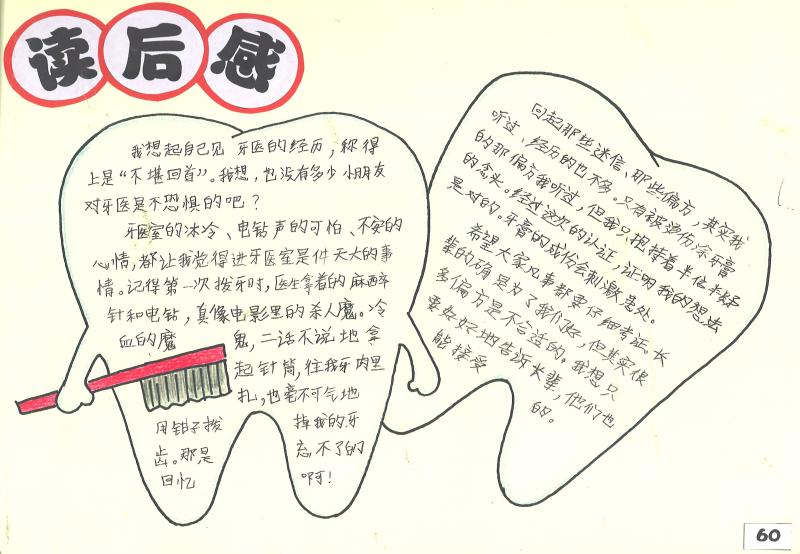 读后感
我想起自己见 牙医的经历，称得
上是“不堪回首”。我想，也没有多少小朋友
对牙医是不恐惧的吧？
牙医室的冰冷、电钻声的可怕、不安的
心情，都让我觉得进牙医室是件天大的事
情。记得第一次拨牙时，医生拿着的麻醉
针和电钻，真像电影里的杀人魔。冷
血的魔 鬼，二话不说地拿
起针筒，往我牙肉里
扎，也毫不可气地
用钳子拨 掉我的牙
齿。那是 忘不了的
回忆 啊！
回起那些迷信、那些偏方，其实我
听过、经历的也不多。只有被烫伤涂牙膏
的那偏方我听过，但我只抱持着半信半疑
的念头。经过这次的认证，证明我的想法
是对的。牙膏的成份会刺激患处。
希望大家凡事都要仔细考证。长
辈的确是为了我们好，但其实很
多偏方是不合适的。我想只
要好好地告诉长辈，他们也
能接受 的。
60